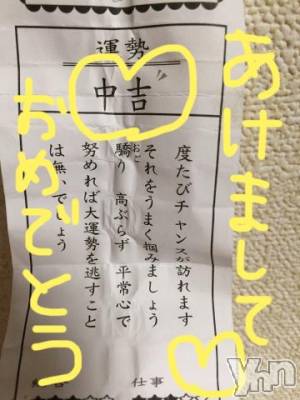 あけまして
おめでとう
運勢
中吉
度たびチャンスが訪れます
それをうまく掴みましょう
おご
驕り 高ぶらず 平常心で
努めれば大運勢を逃すこと
は無いでしょう
仕事